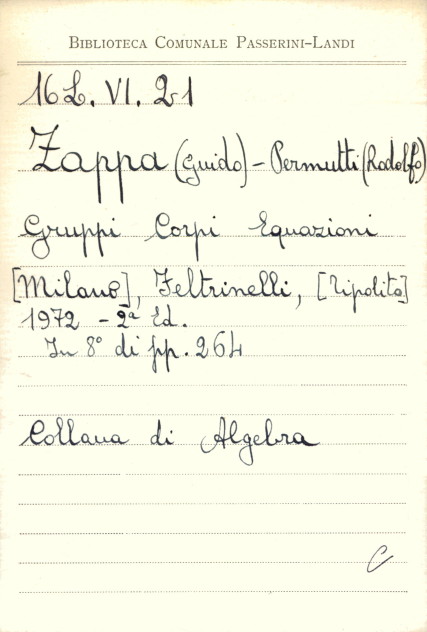 BIBLIOTECA COMUNALE PASSERINI-LANDI
16 L. VI. 21
Zappa (Guido) - Permutti (Rodolfo)
Gruppi Corpi Equazioni
[Milano], Feltrinelli, [Tipolito]
1972 - 2ª Ed.
In 8° di pp. 264
Collana di Algebra
C